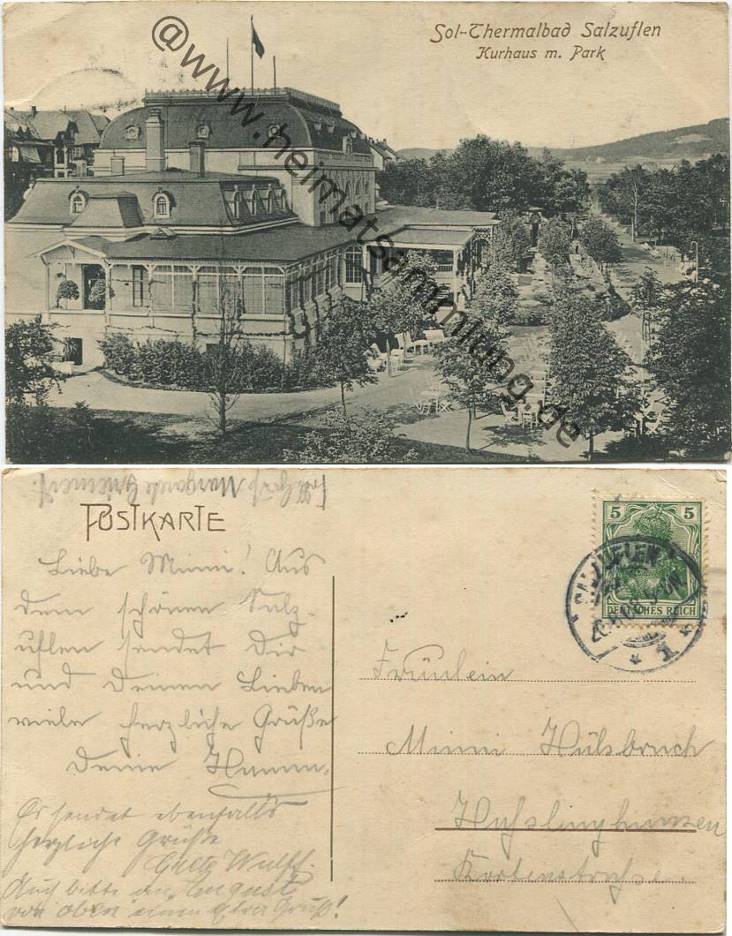 Sol-Thermalbad Salzuflen
Kurhaus m. Park
@www.heimatsammlung.de
POSTKARTE
Liebe Mimi! Aus
dem schönen Salz-
uflen sendet Dir
und Deinen Lieben
viele herzliche Grüße
Deine
Es sendet ebenfalls
herzliche Grüße
Wulff.
Auch bitte
von oben einen Extra Gruß!
5 5
DEUTSCHES REICH
SALZUFLEN
* 1 *
Fräulein
Mimi Hülsbruch